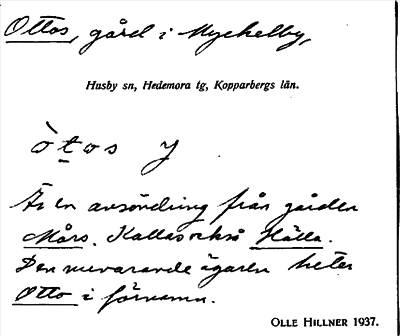 Ottos, gård i Myckelby,
Husby sn, Hedemora tg, Kopparbergs län.
òtos y
Är en avsöndring från gården
Mårs. Kallas också Hälla.
Den nuvarande ägaren heter
Otto i förnamn.
OLLE HILLNER 1937.